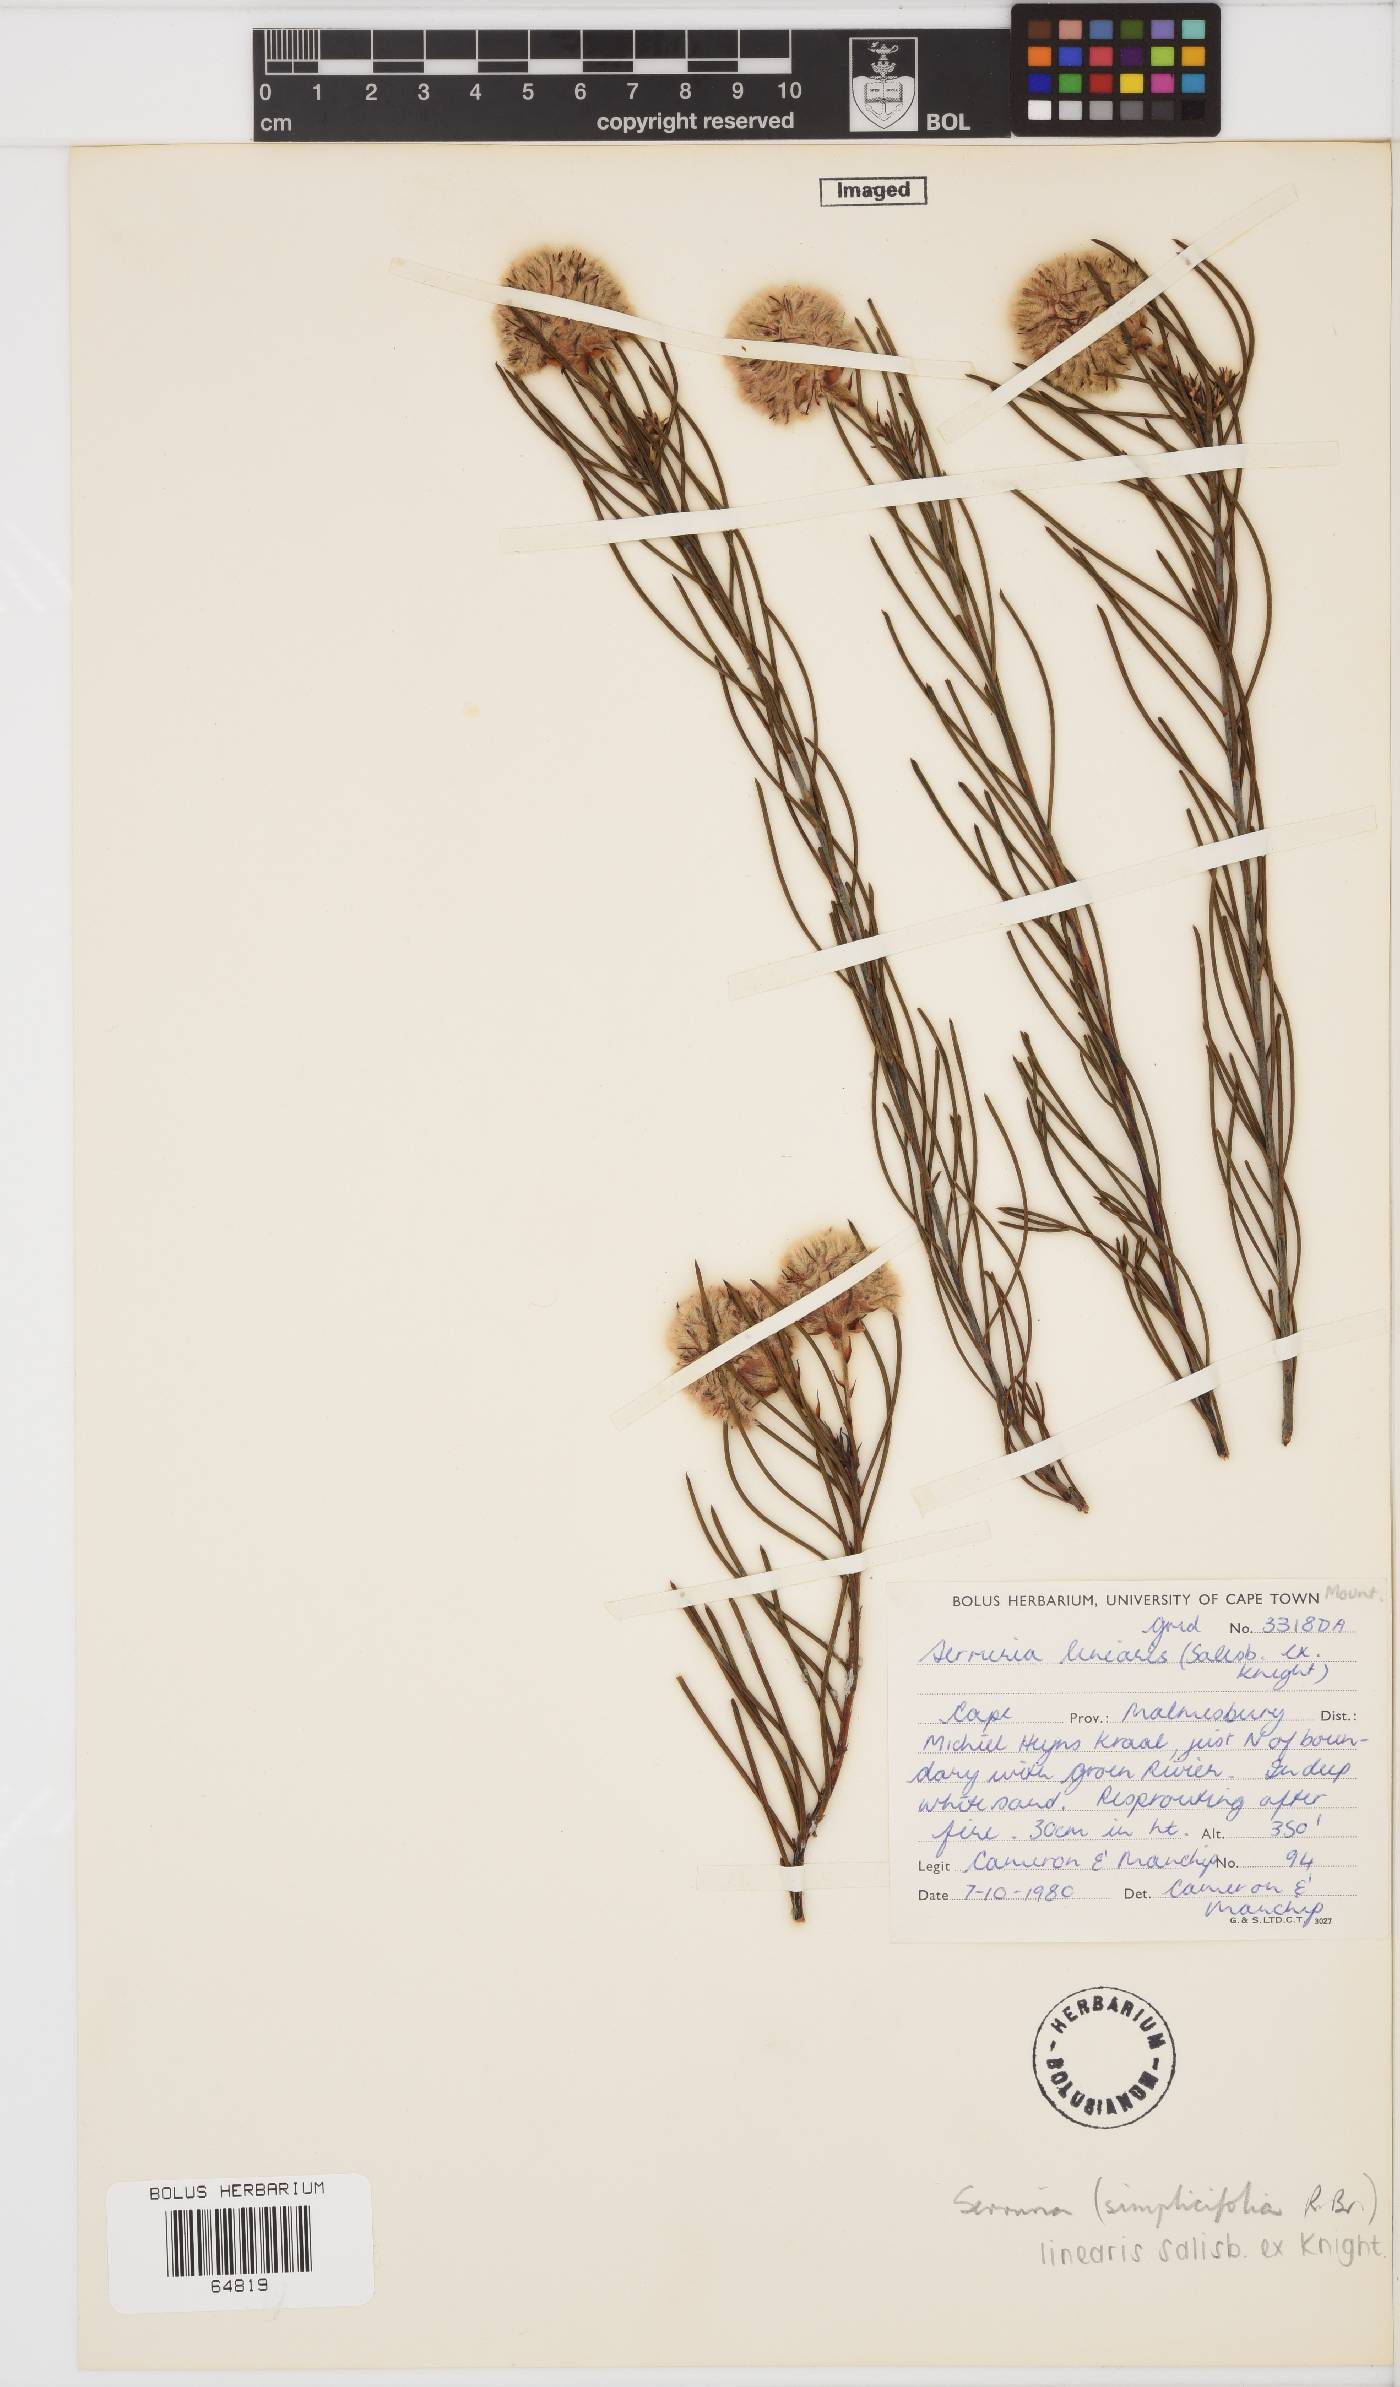 0 1 2 3 4 5 6 7 8 9 10
cm copyright reserved BOL
Imaged
BOLUS HERBARIUM, UNIVERSITY OF CAPE TOWN Mount.
Grid No. 3318DA
Serruria linearis (Salisb. ex.
Knight)
Cape Prov.: Malmesbury Dist.:
Michiel Heyns Kraal, just N of boun-
dary with Groen Rivier. In deep
white sand. Resprouting after
fire. 30cm in ht. Alt. 350'
Legit Cameron & Manchip No. 94
Date 7-10-1980 Det. Cameron &
Manchip
G. & S. LTD. C.T. 3027
HERBARIUM
BOLUSIANUM
Serruria (simplicifolia R. Br.)
linearis Salisb. ex Knight.
BOLUS HERBARIUM
64819